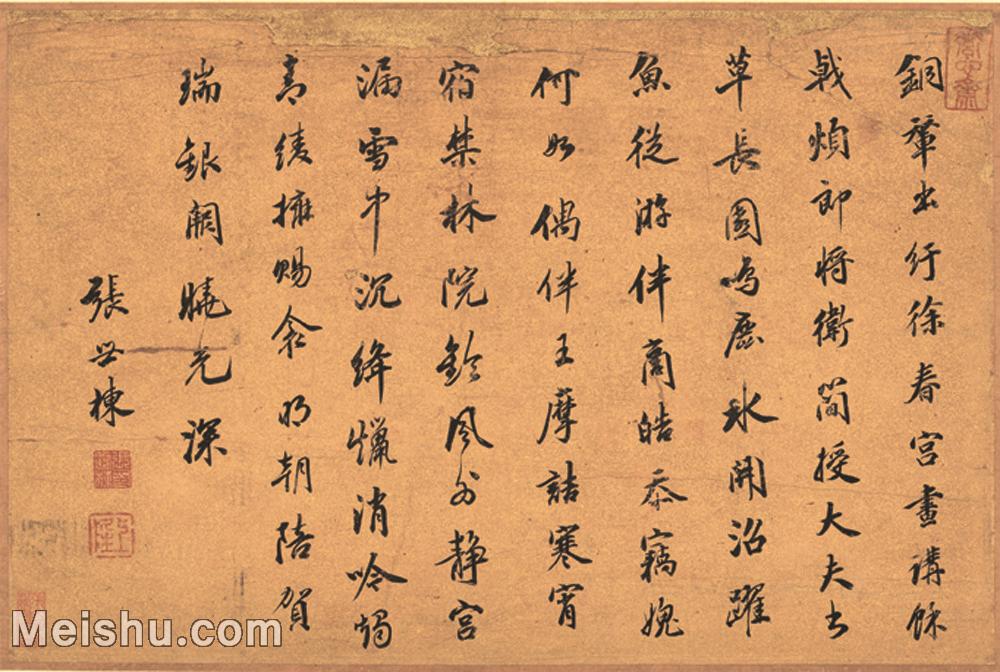 銅輦出行徐春宮晝講餘
戟煩郎將衛簡授大夫書
草長園鳴鹿冰開沼躍
魚從游伴商皓忝竊媿
何如偶伴王摩詰寒宵
宿禁林院鈴風外静宮
漏雪中沉絳蠟消吟燭
青綾擁賜衾明朝陪賀
瑞銀闕曉光深
張世棟
Meishu.com